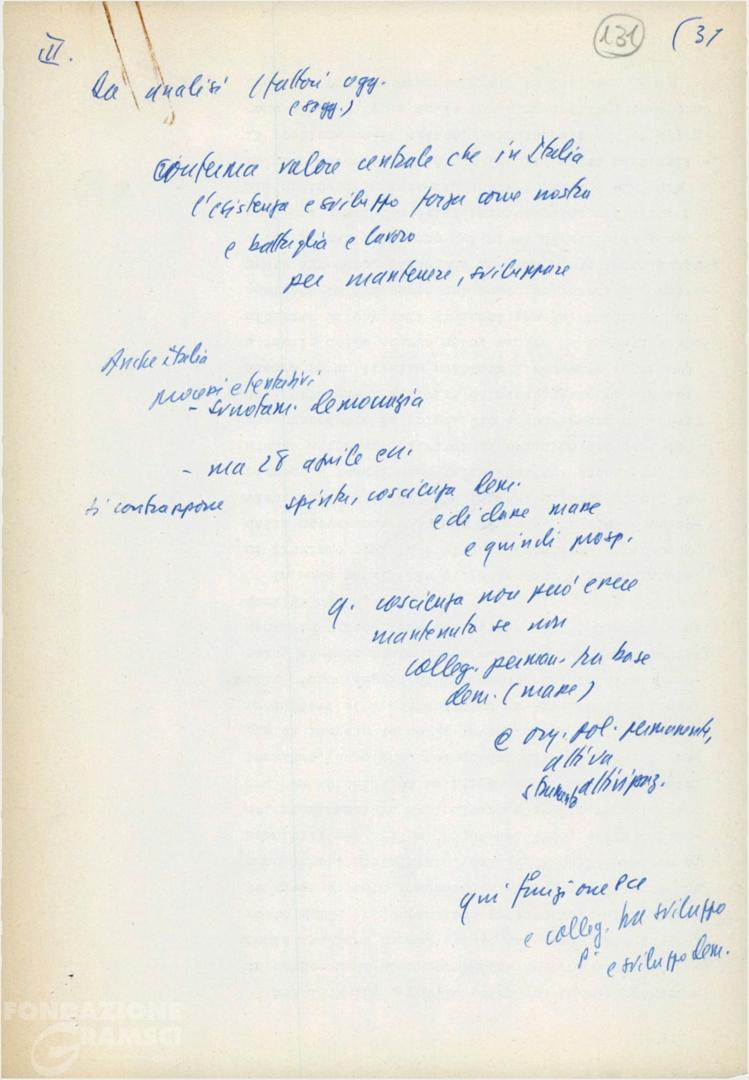 III.
131
(31
Da analisi (fattori ogg.
e sogg.)
conferma valore centrale che in Italia
l'esistenza e sviluppo forza come nostra
e battaglia e lavoro
per mantenere, sviluppare
Anche Italia
processi e tentativi
- svuotam. democrazia
- ma 28 aprile ecc.
si contrappone spinta, coscienza dem.
e di classe masse
e quindi prosp.
q. coscienza non può essere
mantenuta se non
colleg. perman. tra base
dem. (masse)
e org. pol. permanente,
attiva
strumento attivizzaz.
qui funzione PCI
e colleg. tra sviluppo
P. e sviluppo dem.
FONDAZIONE
GRAMSCI